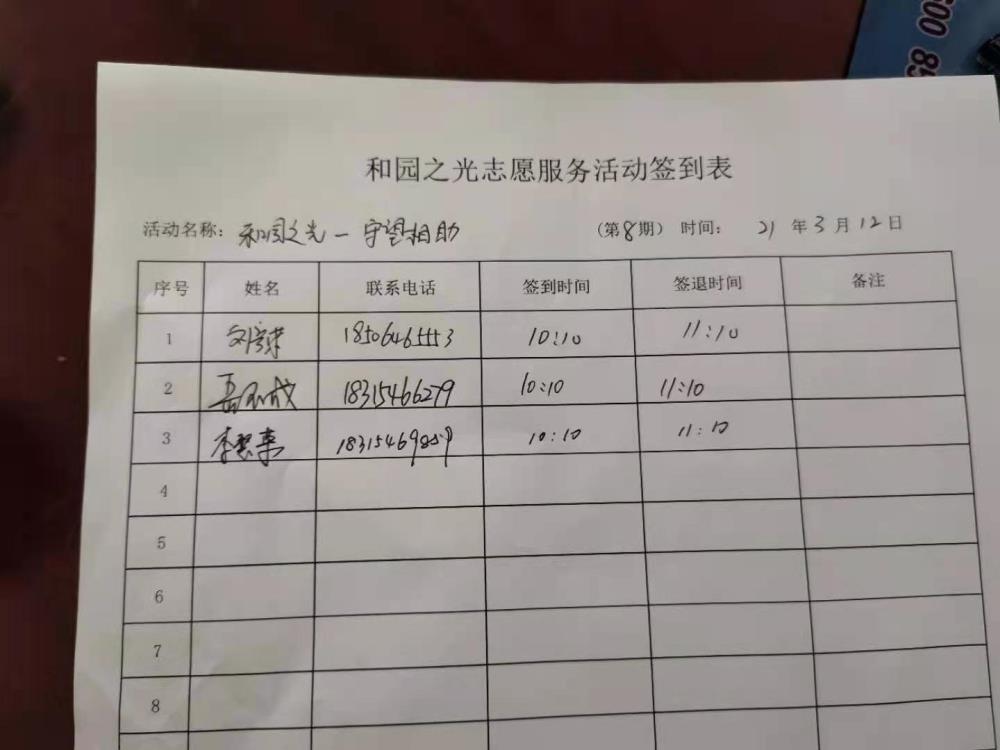 00 85
和园之光志愿服务活动签到表
活动名称：和园之光－守望相助 （第8期） 时间： 21 年 3 月 12 日
序号 姓名 联系电话 签到时间 签退时间 备注
1 18506465553 10:10 11:10
2 18315466279 10:10 11:10
3 李慧 18315469859 10:10 11:10
4
5
6
7
8